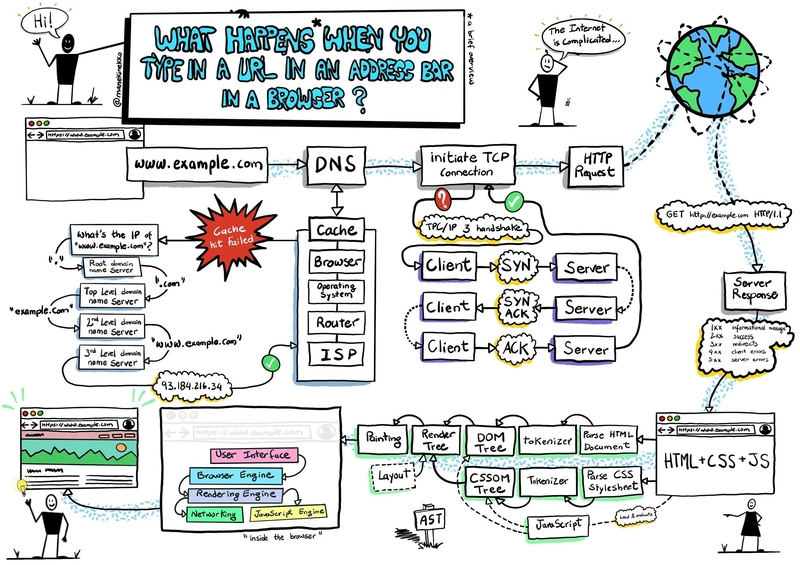 Hi!
@manekinekko
WHAT HAPPENS* WHEN YOU
TYPE IN A URL IN AN ADDRESS BAR
IN A BROWSER?
* a brief overview
The Internet
is complicated...
https://www.example.com
www.example.com
DNS
initiate TCP
Connection
HTTP
Request
GET http://example.com HTTP/1.1
Server
Response
1xx informational message
2xx success
3xx redirects
4xx client errors
5xx server errors
?
TPC/IP 3 handshake
Client
SYN
Server
Client
SYN
ACK
Server
Client
ACK
Server
Cache
Browser
Operating
System
Router
ISP
Cache
hit failed
What's the IP of
"www.example.com"?
"."
Root domain
name Server
".com"
Top Level domain
name Server
"example.com"
2nd Level domain
name Server
"www.example.com"
3rd Level domain
name Server
93.184.216.34
https://www.example.com
HTML+CSS+JS
Parse HTML
Document
tokenizer
DOM
Tree
Render
Tree
Painting
Layout
Parse CSS
Stylesheet
Tokenizer
CSSOM
Tree
JavaScript
Load & execute
AST
https://www.example.com
User Interface
Browser Engine
Rendering Engine
Networking
JavaScript Engine
"inside the browser"
https://www.example.com